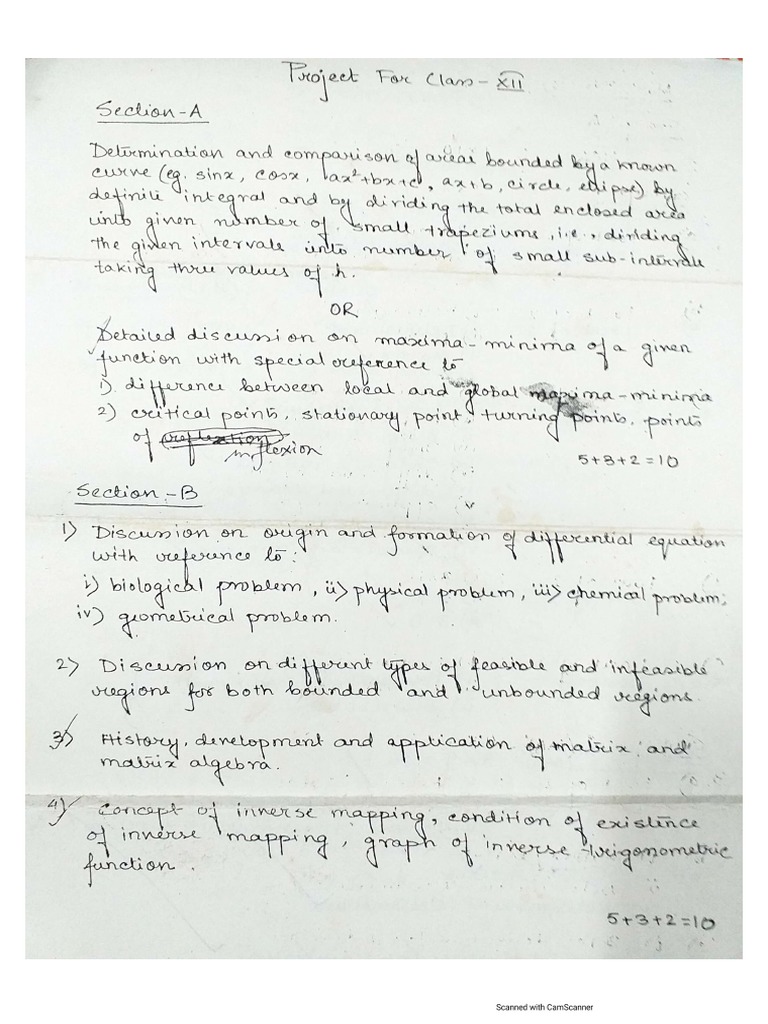 Project For Class - XII
Section-A
Determination and comparison of areas bounded by a known
curve (eg. sinx, cosx, ax²+bx+c, ax+b, circle, ellipse) by
definite integral and by dividing the total enclosed area
into given number of small trapeziums, i.e., dividing
the given intervals into number of small sub-intervals
taking three values of h.
OR
Detailed discussion on maxima-minima of a given
function with special reference to
1) difference between local and global maxima-minima
2) critical points, stationary point, turning points, points
of inflexion
5+3+2=10
Section-B
1) Discussion on origin and formation of differential equation
with reference to:
i) biological problem, ii) physical problem, iii) chemical problem,
iv) geometrical problem.
2) Discussion on different types of feasible and infeasible
regions for both bounded and unbounded regions.
3) History, development and application of matrix and
matrix algebra.
4) Concept of inverse mapping, condition of existence
of inverse mapping, graph of inverse trigonometric
function.
5+3+2=10
Scanned with CamScanner